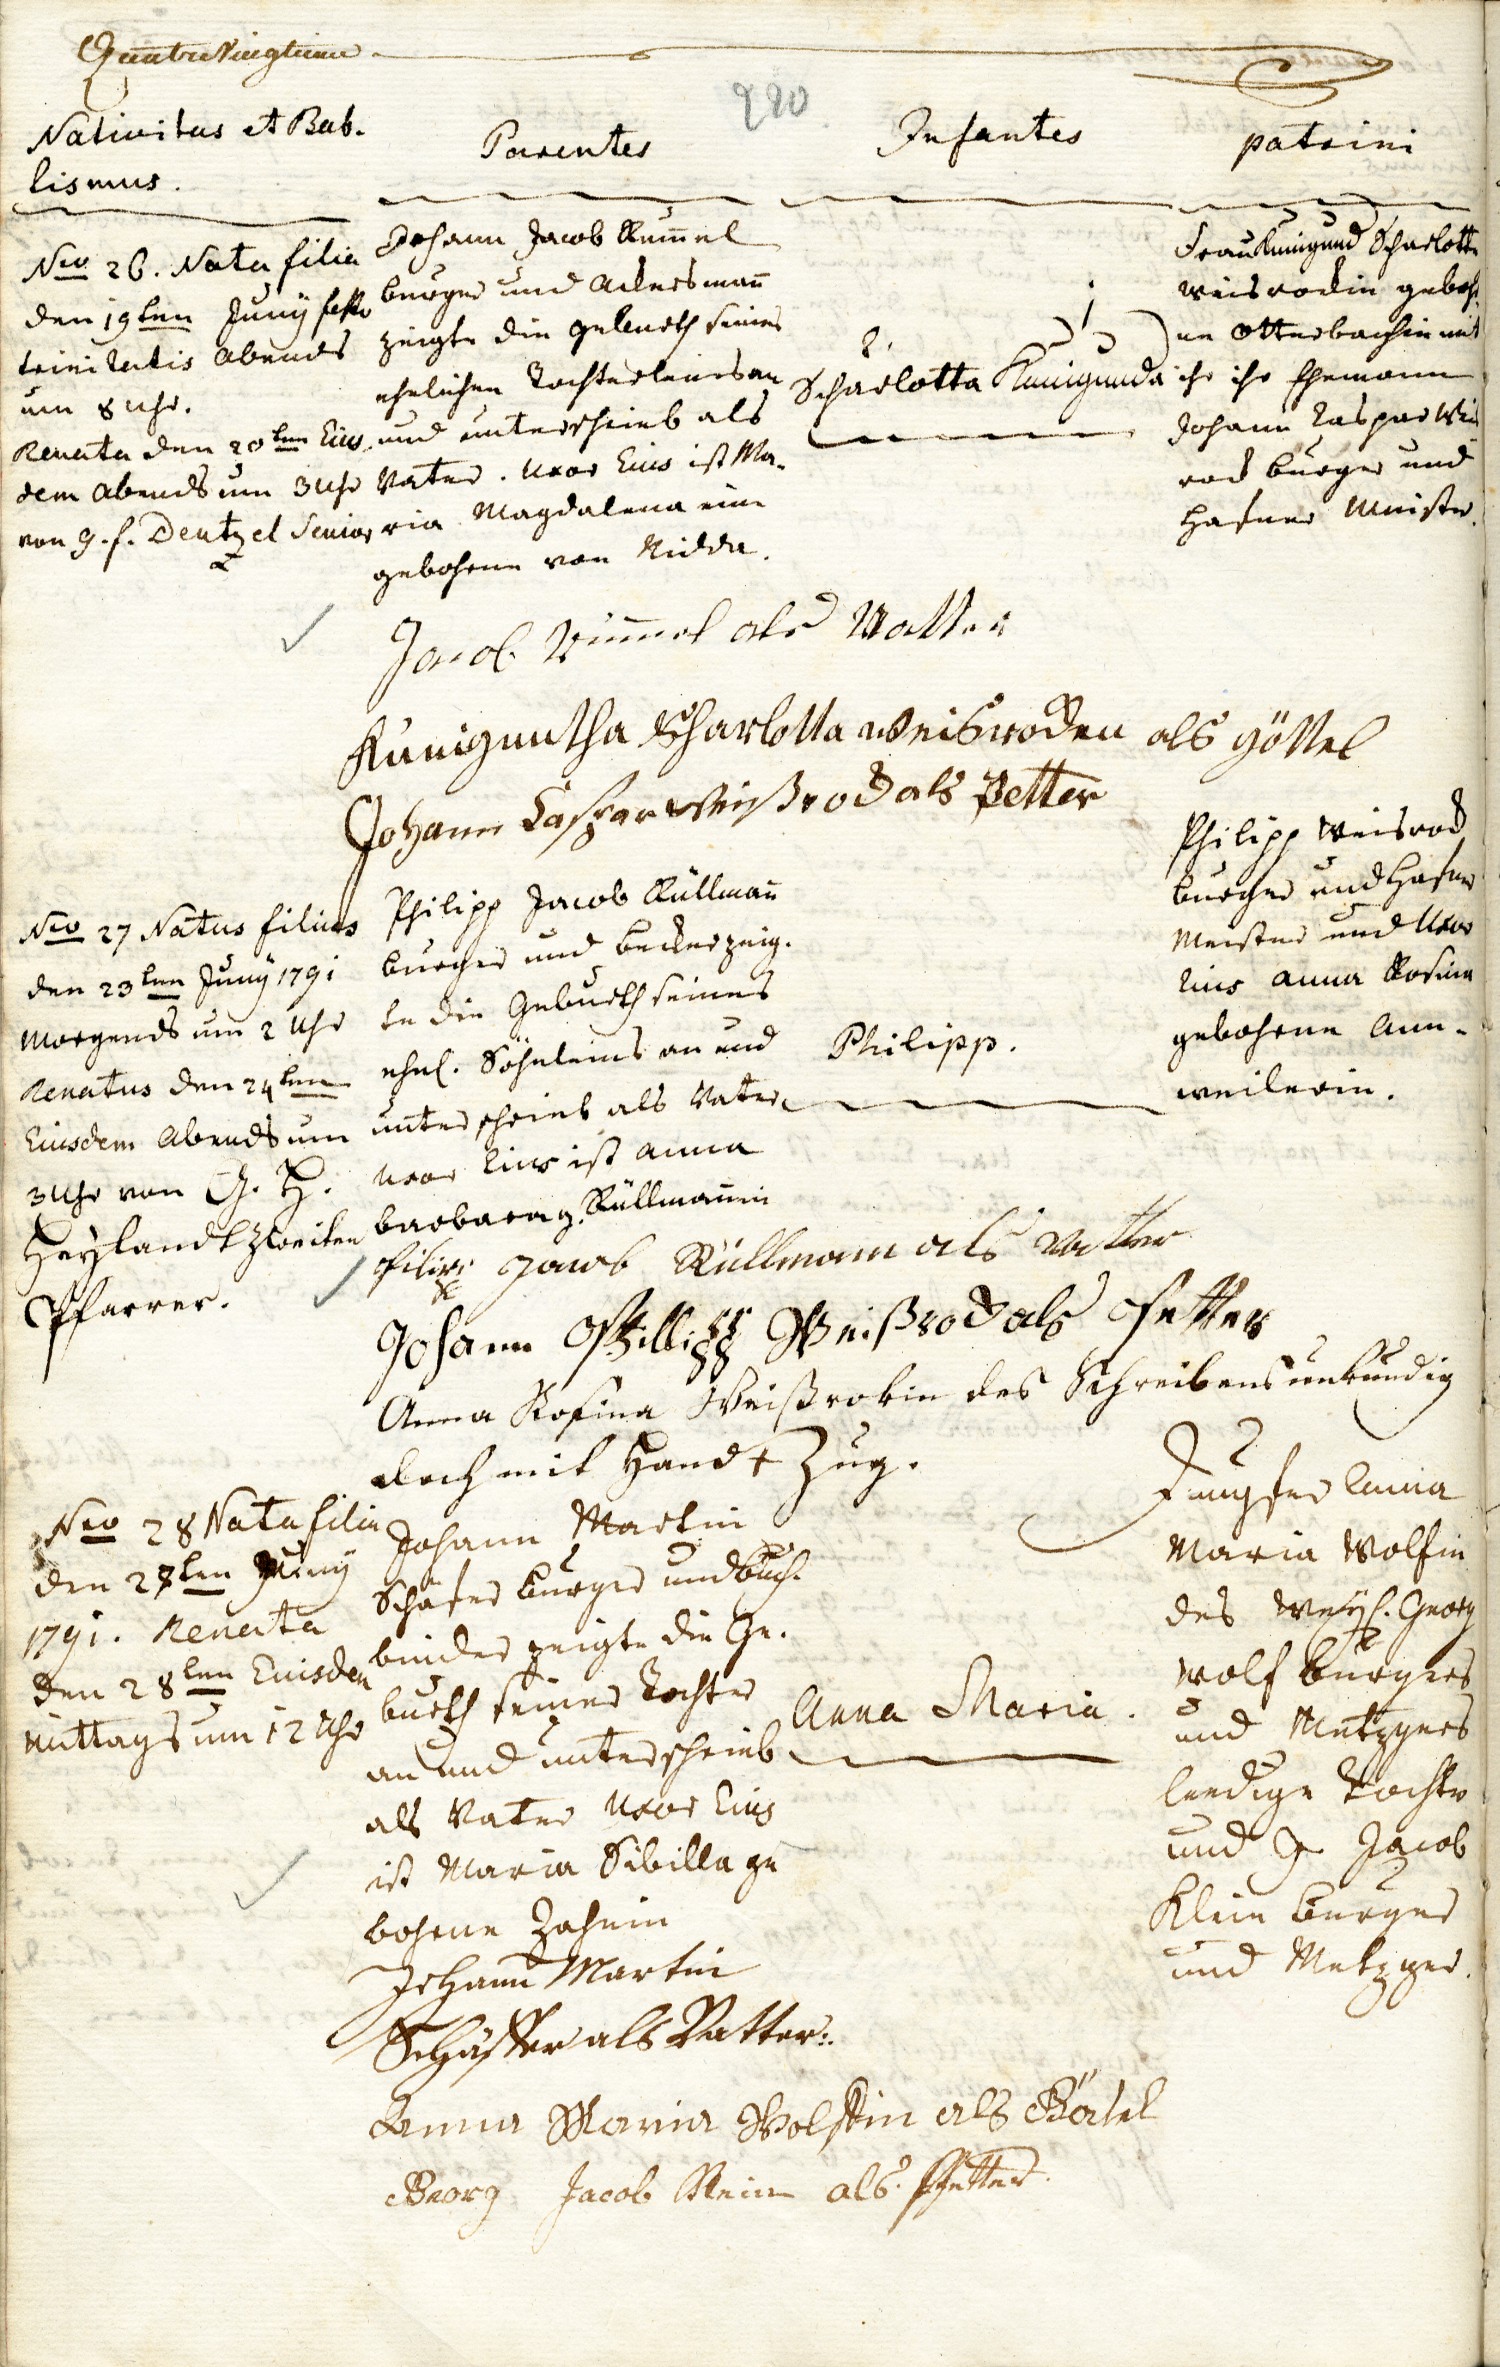 Quatre Vingtieme
220
Nativitas et Bab-
tismus.
Parentes
Infantes
patrini
Nro 26. Nata filia
den 19ten Junÿ festo
trinitatis Abends
um 8 Uhr.
Renata den 20ten Eius-
dem Abends um 3 Uhr
von G. F. Dentzel Senior
Johann Jacob Rum̄el
burger und Ackersman̄
zeigte die geburth seines
ehelichen Töchterleins an
und unterschrieb als
Vater. Uxor Eius ist Ma-
ria Magdalena eine
gebohrne von Nidda.
2. 1
Scharlotta Kunigunda
Frau Kunigund Scharlotte
Weisrodin geboh-
ne Otterbachin mit
ihr ihr Ehemann
Johann Caspar Weis
rod burger und
Hafner Meister.
Jacob Rim̄el als Vatter
Kuniguntha Scharlotta Weisroden als göttel
Johann Casper Weißrod als Petter
Nro 27 Natus filius
den 23ten Junÿ 1791
Morgends um 2 Uhr
Renatus den 24ten
Eiusdem Abends um
3 Uhr von G. H.
Heÿlandt Zweiten
Pfarrer.
Philipp Jacob Rüllman̄
burger und becker zeig-
te die Geburth seines
ehel. Söhnleins an und
unterschrieb als Vater
Uxor Eius ist Anna
barbara g. Rüllman̄in
Philipp.
Philipp Weisrod
burger und Hafner
Meister und Uxor
Eius Anna Rosina
gebohrne Ann-
weilerin.
Filipp Jacob Rüllmann als Vatter
Johann Phillipp Weißrod als Petter
Anna Rosina Weißrodin des Schreibens unkundig
doch mit Hand + Zug.
Nro 28 Nata filia
den 27ten Junÿ
1791. Renata
den 28ten Eiusdem
Mittags um 12 Uhr
Johann Martin
Schäfer burger und buch-
binder zeigte die Ge-
burth seiner Tochter
an und unterschrieb
als Vater Uxor Eius
ist Maria Sibilla ge
bohrne Zahnin
Anna Maria.
Jungfer Anna
Maria Wolfin
des Weÿl. Georg
Wolf burgers
und Metzgers
leedige Tochter
und G. Jacob
Klein burger
und Metzger.
Johann Martin
Schäffer als Vatter:
Anna Maria Wolffin als Götel
Georg Jacob Klein als Pfetter.